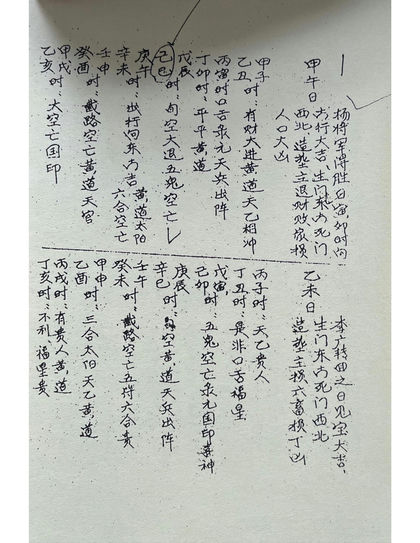 杨将军得胜日寅卯时向
甲午日
出行大吉、生门东方死门
西北，造葬主退财败家损
人口大凶
甲子时：有财大进黄道天乙相冲
乙丑时：
丙寅时口舌 天兵出阵
丁卯时：平平黄道
戊辰
己巳时：旬空大退五鬼空亡
庚午
辛未时：出行向东方吉 黄道太阳
六合空亡
壬申
癸酉时：截路空亡黄道天官
甲戌时：
乙亥时：大空亡国印
李广转回之日见宝大吉，
乙未日
生门东方死门西北
造葬主损六畜损丁凶
丙子时：天乙贵人
丁丑时：是非口舌福星
戊寅时：
己卯时：五鬼空亡 国印喜神
庚辰
辛巳时：旬空黄道天兵出阵
壬午
癸未时：截路空亡五符六合贵
甲申时：
乙酉时：三合太阳天乙黄道
丙戌时：有贵人黄道
丁亥时：不利，福星贵